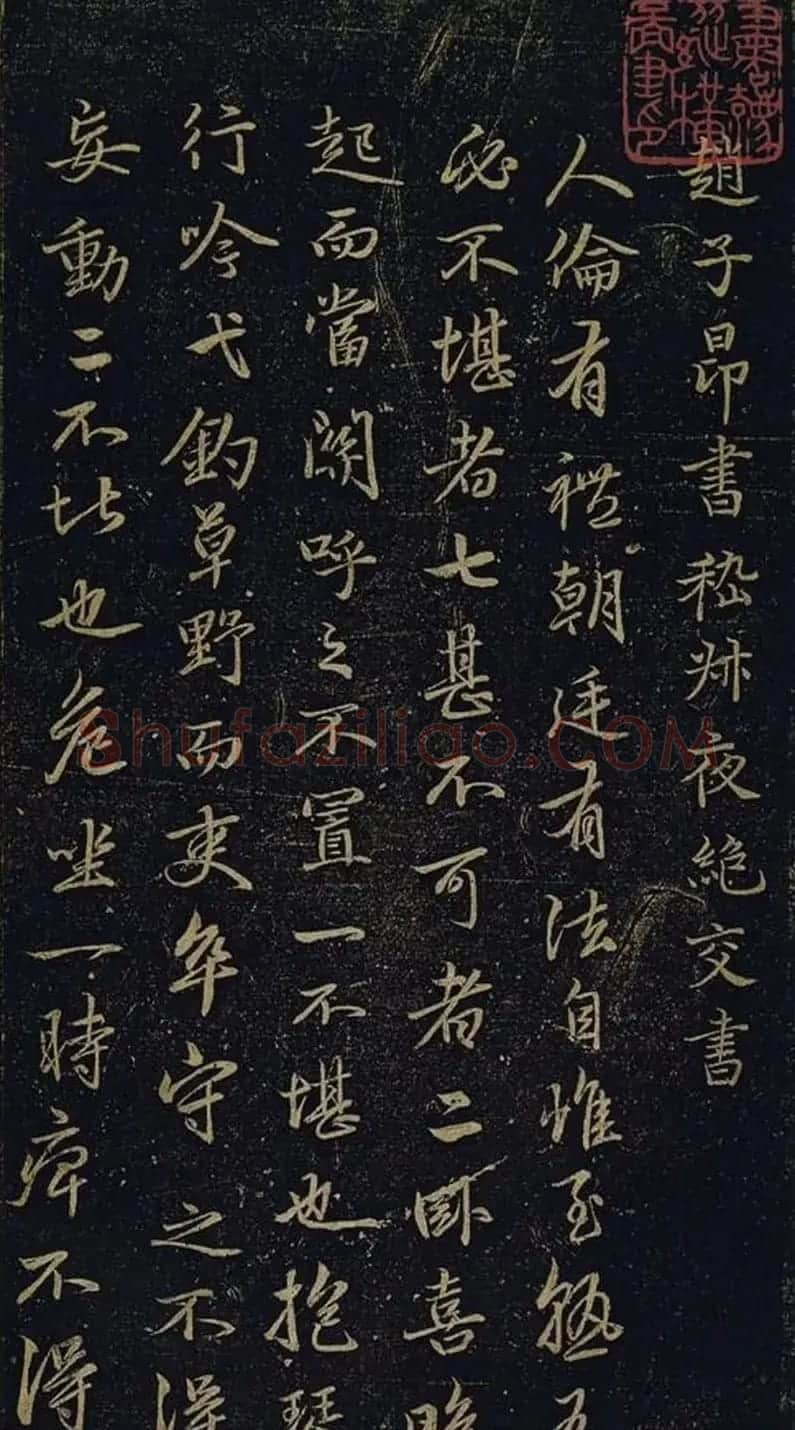 趙子昂書嵇叔夜絶交書
人倫有禮朝廷有法自惟至熟
必不堪者七甚不可者二卧喜晚
起而當關呼之不置一不堪也抱琴
行吟弋釣草野而吏卒守之不得
妄動二不堪也危坐一時痺不得
Shufaziliao.COM